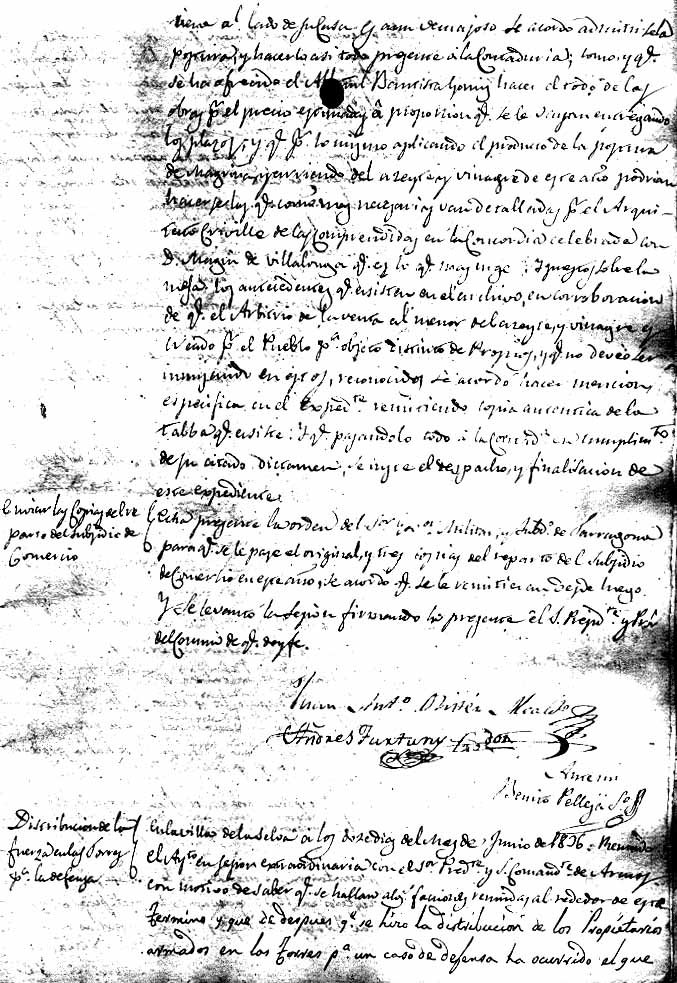 tiene al lado de su Casa y aun demajoso se acordo admitirsela
postura, y hacerlo asi todo presente á la Contaduria; como y qᵉ
se ha ofrecido el Bautista Gomis hacer el todo de las
obras pʳ el precio á proporcion qᵉ se le vayan entregando
los plazos, y qᵉ pʳ lo mismo aplicando el producto de la postura
de y arriendo del azeyte y vinagre de este año podrian
hacerse las qᵉ como mas necesarias van detalladas pʳ el Arqui-
tecto de las comprendidas en la Concordia celebrada con
D. Magin de Villalonga qᵉ es lo qᵉ mas urge: Y puestos sobre la
mesa los antecedentes qᵉ existen en el archivo, en corroboracion
de qᵉ el Arbitrio de la venta al menor del azeyte, y vinagre es
pʳ el Pueblo pᵃ objeto distinto de Propios, y qᵉ no deve ser
en estos, reconocidos se acordo hacer mencion
especifica en el Expedᵗᵉ remitiendo copia autentica de la
tabba qᵉ existe: Y qᵉ pasandolo todo á la Contadᵃ en cumplimᵗᵒ
de su citado dictamen, se inste el despacho, y finalisacion de
este expediente.
Enviar las Copias del re
parto del subsidio de
Comercio
Hecha presente la orden del Sᵒʳ Goʳ Militar, y Subdᵒ de Tarragona
para qᵉ se le pase el original, y tres copias del reparto del Subsidio
de Comercio en este año, se acordo qᵉ se le remitieran desde luego.
Y se levanto la sesion firmando los presente el S. Regᵗᵉ y Prᵒʳ
del Comun de qᵉ doy fe.
Juan Antᵒ Alcalde
Andres Fortuny
Ante mi
Benito Pellejá Sᵒ
Distribucion de la
fuerza en las Torres
pᵃ la defenza
En la villa de la Selva á los doze dias del Mes de Junio de 1836. Reunido
el Aytᵒ en sesion extraordinaria con el Sᵒʳ y S. Comandᵗᵉ de Armas
con motivo de saber qᵉ se hallan alg. facciones reunidas al rededor de este
Termino y que de despues qᵉ se hizo la distribucion de los Propietarios
armados en las Torres pᵃ un caso de defensa ha ocurrido el que